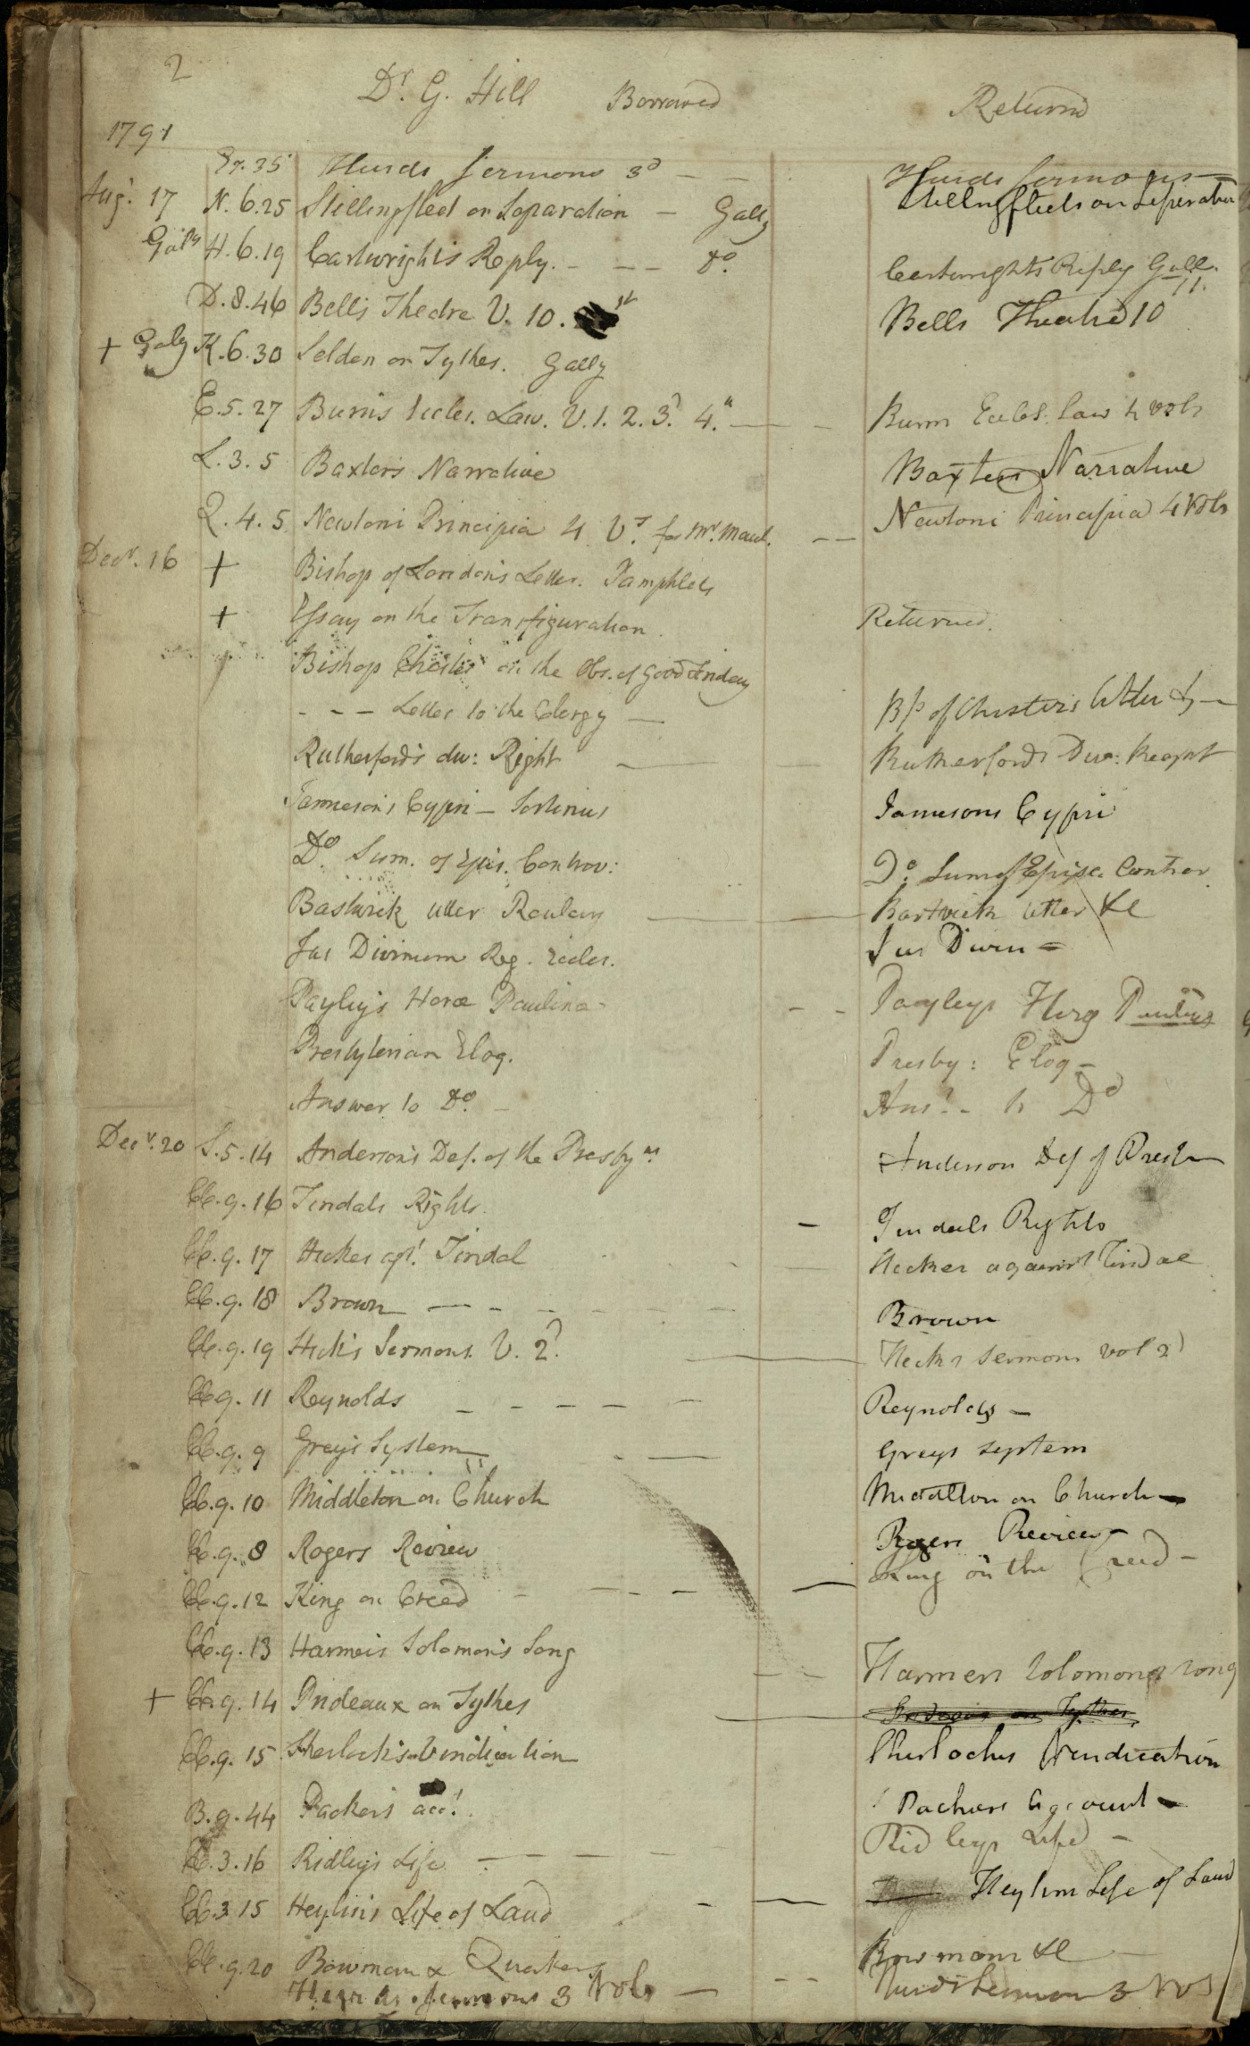 2
Dr. G. Hill Borrowed Returned
1791
Hurds Sermons 3d Hurds Sermons
Augt. 17 N. 6.25 Stillingfleet on Separation - Gally Stillingfleets on Seperation
Gally H. 6.19 Cartwright's Reply. - - - Do. Cartwrights Reply Gall.
D. 8. 46 Bell's Theatre V. 10. Bells Theatre 10
+ Gally K. 6. 30 Selden on Tythes. Gally
E. 5. 27 Burn's Eccles. Law. V. 1. 2. 3d 4. Burn Eccles. law 4 vols
L. 3. 5 Baxter's Narrative Baxters Narrative
Q. 4. 5 Newtoni Principia 4 Vs. for Mr. Newtoni Principia 4 Vols
Decr. 16 + Bishop of London's Letter. Pamphlets
+ Essay on the Transfiguration. Returned.
Bishop Chester on the Obs. of Good Friday
- - - Letter to the Clergy Bp of Chesters letter &
Rutherford's div: Right Rutherfords Div:
Jammeson's Cypri - Isotimus Jamesons Cypri
Do Sum. of Epis. Controv: Do. Sum of Episc. Controv.
Bastwick utter Routing Bastwick utter &c
Jus Divinum Reg. Eccles. Jus Divin =
Payley's Horæ Paulinæ Payleys Horæ
Presbyterian Eloq. Presby: Eloq -
Answer to Do. Ansr. to Do
Decr. 20 S. 5. 14 Anderson's Def. of the Presbyns. Anderson Def of Presb
Cc. 9. 16 Tindals Rights. Tindals Rights
Cc. 9. 17 Hickes agt. Tindal Hickes against Tindal
Cc. 9. 18 Brown Brown
Cc. 9. 19 Hick's Sermons. V. 2d. Hicks sermons vol 2d
Cc. 9. 11 Reynolds Reynolds -
Cc. 9. 9 Grey's System Greys system
Cc. 9. 10 Middleton on Church Middleton on Church
Cc. 9. 8 Rogers Review Rogers Review
Cc. 9. 12 King on Creed King on the Creed -
Cc. 9. 13 Harmer's Solomon's Song Harmers Solomons song
+ Cc. 9. 14 Prideaux on Tythes Prideaux on Tythes
Cc. 9. 15 Sherlock's Vindication Sherlocks Vindication
B. 9. 44 Packer's acct. Packers account
Cc. 3. 16 Ridley's Life Ridleys Life -
Cc. 3 15 Heylin's Life of Laud Heylins Life of Laud
Cc. 9. 20 Bowman & Quakers Bowman &c
Hurds Sermons 3 Vols Hurds Sermons 3 Vols